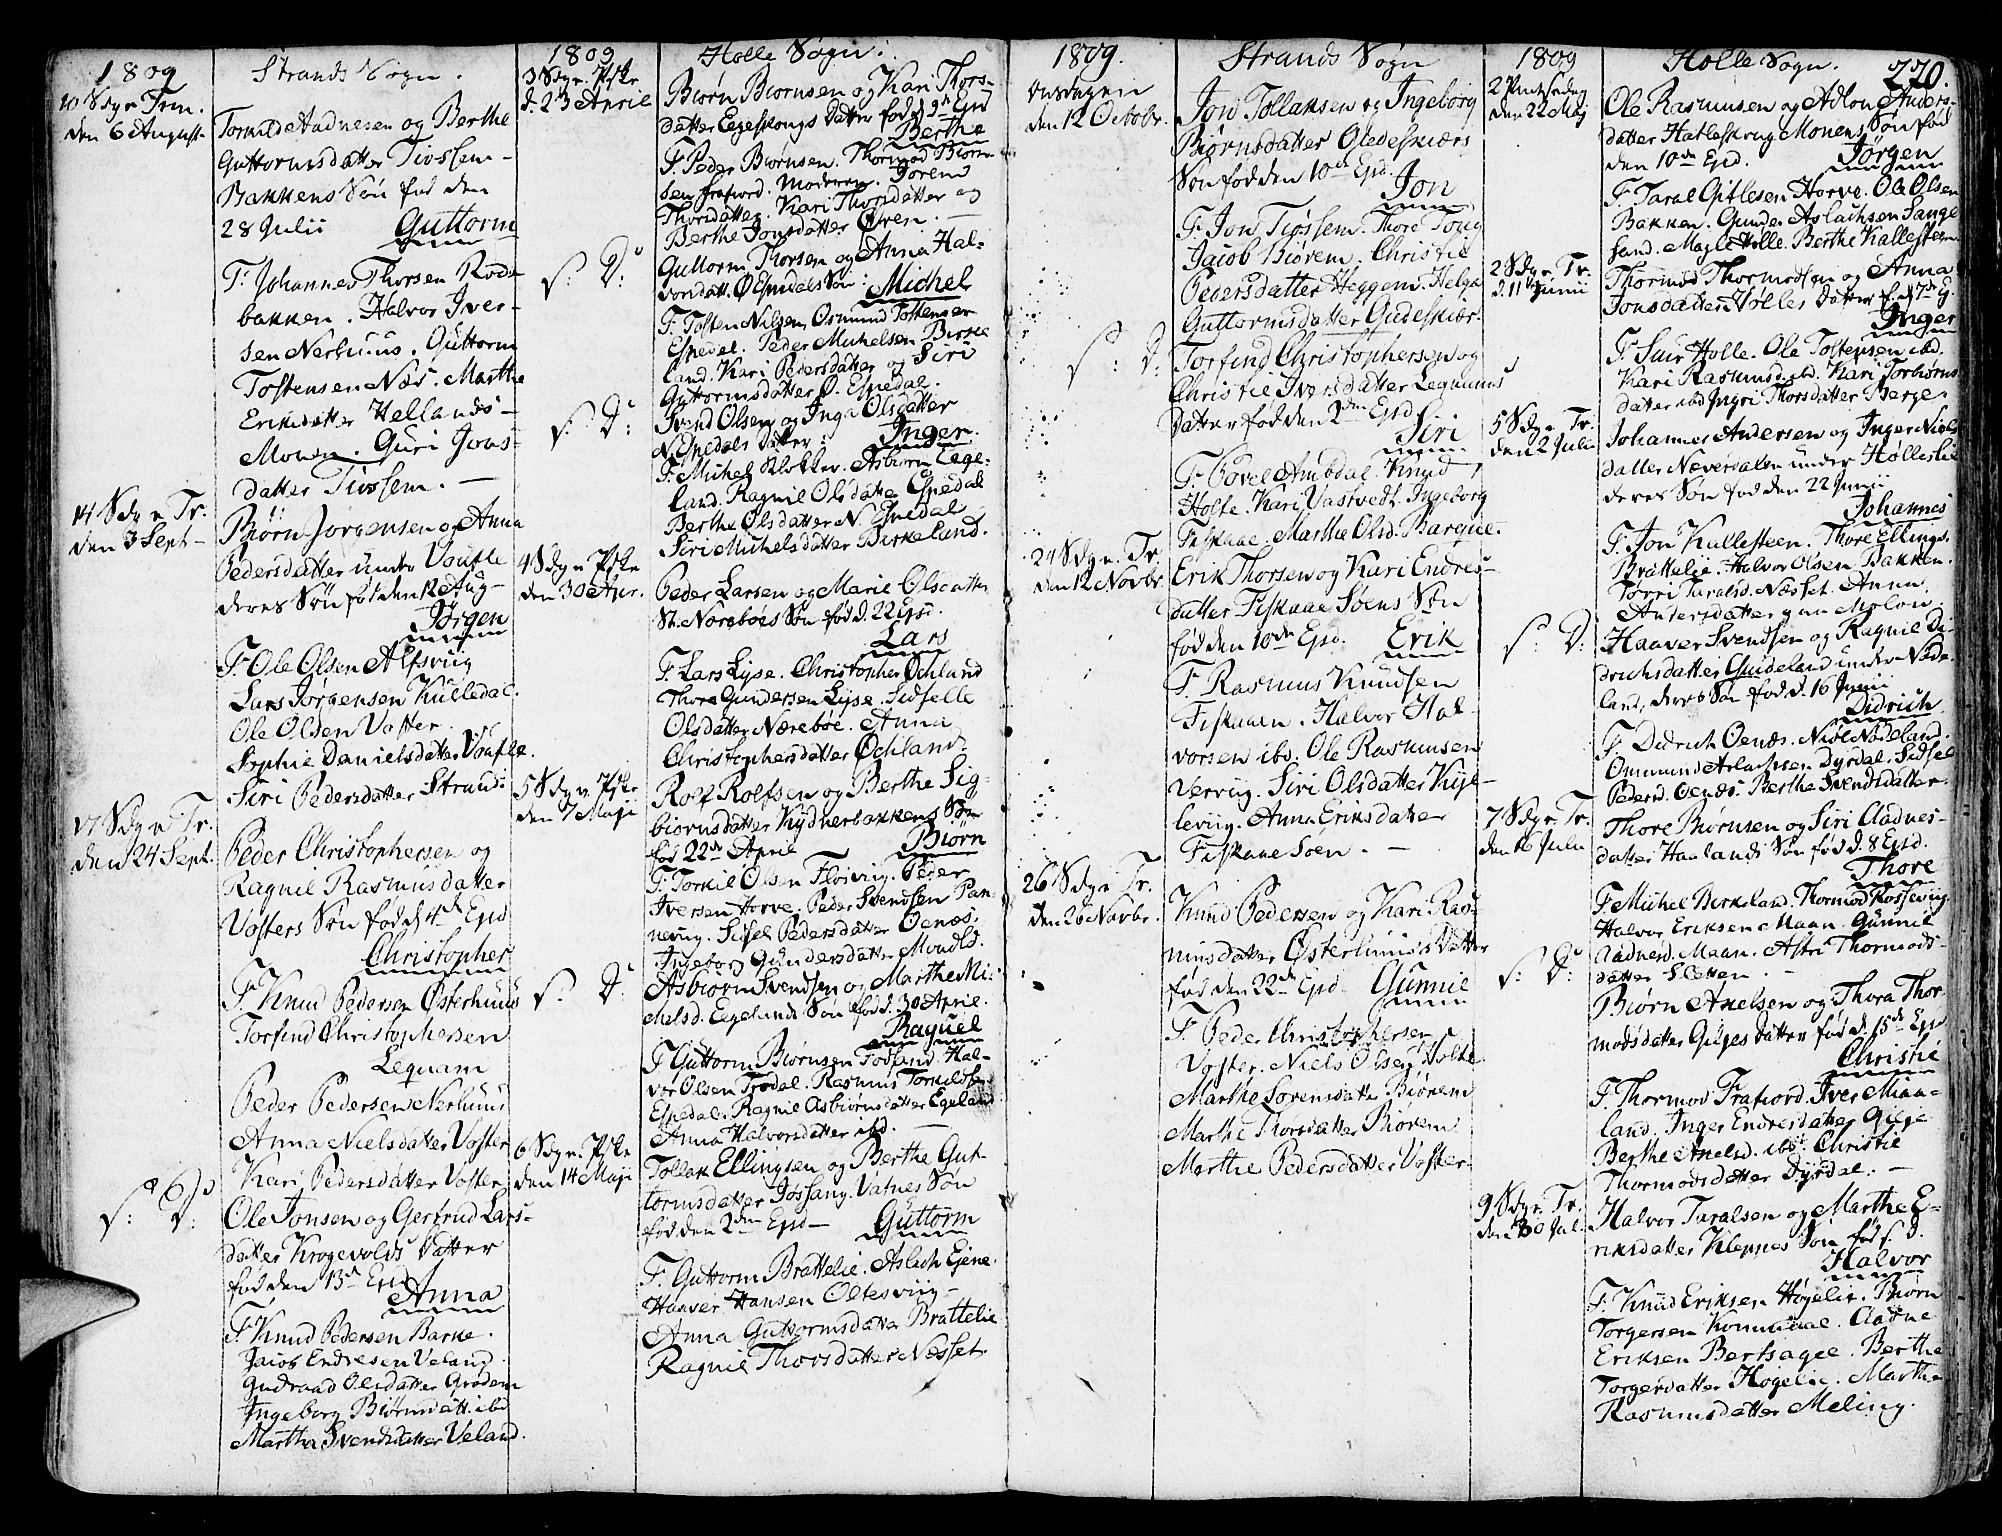 1809
Strands Sogn.
10 Sdgn Trin.
den 6 August
Torkild Aadnesen og Berthe
Guttormsdatter Tiossem-
Bakkens Søn fød den
28 Julii Guttorm
F. Johannes Thorsen Rods-
bakken. Halvor Iver-
sen Nerhuus. Guttorm
Tostensen Næs. Marthe
Eriksdatter Hellands-
Moen. Guri Jons-
datter Tiossem. -
14 Sdgn Tr.
den 3 Sept-
Biørn Jørgensen og Anna
Pedersdatter under Voufle
deres Søn fød den 12 Aug-
Jørgen
F. Ole Olsen Alfsviig
Lars Jørgensen Kulledal.
Ole Olsen Voster.
Sophie Danielsdatter Voufle.
Siri Pedersdatter Strand.
17 Sdgn Tr.
den 24 Sept.
Peder Christophersen og
Ragnil Rasmusdatter
Vosters Søn fød d. 4de Ejsd
Christopher
F. Knud Pedersen Østerhuus
Torfind Christophersen
Lequam
Peder Pedersen Nerhuus
Anna Nielsdatter Voster
Kari Pedersdatter Voster
S: D:
Ole Jonsen og Gertrud Lars-
datter Krogevolds Datter
fød den 13de Ejsd
Anna
F. Knud Pedersen Barke.
Jacob Endresen Veland
Gudraad Olsdatter Grødem
Ingeborg Biørnsdatt. ibd
Martha Svendsdatter Veland.
1809
Holle Sogn.
3 Sdgn. Pske
d. 23 Aprile
Biørn Biørnsen og Kari Thors-
datter Eegeskougs Datter fød d 9de Ejsd
Berthe
F. Peder Biørnsen. Thormod Biørn-
sen Frafiord. Moderen. Joren
Thorsdatter. Kari Thorsdatter og
Berthe Jonsdatter Øvren. -
S: D:
Guttorm Thorsen og Anna Hal-
vorsdatt. Ø. Espedals Søn: Michel
F. Tosten Nilsen, Osmund Tostensen
Espedal. Peder Michelsen Birke
land. Kari Pedersdatter og Siri
Guttormsdatter Ø. Espedal.
S: D:
Svend Olsen og Inga Olsdatter
N. Espedals Datter: Inger.
F. Michel Klokker. Asbiørn Eege-
land. Ragnil Olsdatter Espedal
Berthe Olsdatter N. Espedal
Siri Michelsdatter Birkeland.
4 Sdgn Pske
den 30 Apr.
Peder Larsen og Marie Olsdatter
St. Nærebøes Søn fød d. 22 Ejsd.
Lars
F. Lars Lyse. Christopher Øchland
Thore Gundersen Lyse. Sidselle
Olsdatter Nærebøe. Anna
Christophersdatter Øchland
5 Sdgn. Pske
den 7 Maji
Rolf Rolfsen og Berthe Sig-
biørnsdatter Kydnerbakkens Søn
fød 22de April Biørn
F. Torkil Olsen Fløiviig. Peder
Iversen Horve. Peder Svendsen Pan-
neviig. Sidsel Pedersdatter Oenæs.
Ingeborg Gundersdatter Mundsl.
S: D:
Asbiørn Svendsen og Marthe Mi-
chelsd. Eegelands Søn fød d. 30 April.
Raguel
F. Guttorm Biørnsen Todland. Hal-
vor Olsen Trodal. Rasmus Torkildsen
Espedal. Ragnil Asbiørnsdatter Egeland
Anna Halvorsdatter ibd. -
6 Sdgn. Pske
den 14 Maji
Tollak Ellingsen og Berthe Gut-
tormsdatter Jøssang. Vatnes Søn
fød den 2den Ejsd - Guttorm
F. Guttorm Brattelie. Aslach Ejene.
Haaver Hansen Oltesviig-
Anna Guttormsdatter Brattelie
Ragnil Thorsdatter Næsset.
1809.
Strands Sogn
Onsdagen
den 12 Octobr.
Jon Tollaksen og Ingeborg
Biørnsdatter Gledeskiærs
Søn fød den 10de Ejsd.
Jon
F. Jon Tiøssem. Thore Toug
Jacob Biørem. Christie
Pedersdatter Heggem. Helga
Guttormsdatter Gudeskiær.
S: D.
Torfind Christophersen og
Christie Iversdatter Lequams
Datter fød den 2den Ejsd
Siri
F. Povel Ambdal. Knud
Holte. Kari Vastvedt. Ingeborg
Fiskaae. Marthe Olsd. Barque.
24 Sdgn Tr.
den 12 Novbr
Erik Thorsen og Kari Endres-
datter Fiskaae Søens Søn
fød den 10de Ejsd. Erik
F. Rasmus Knudsen
Fiskaaen. Halvor Hal-
vorsen ibd. Ole Rasmusen
Verviig. Siri Olsdatter Kige-
leviig. Anna Eriksdatter
Fiskaae Søen. -
26 Sdgn Tr.
den 26 Novbr.
Knud Pedersen og Kari Ras-
musdatter Østerhuus's Datter
fød den 22de Ejsd Gunnil
F. Peder Christophersen
Voster. Niels Olsen Holte
Marthe Sorensdatter Biørem
Marthe Thorsdatter Biørem
Marthe Pedersdatter Voster.
1809
Holle Sogn.
220.
2 Pintsedag
den 22 Maj
Ole Rasmusen og Adlou Anders-
datter Hatleskrug Monens Søn fød
den 10de Ejsd. Jørgen
F. Taral Gitlesen Horve. Ole Olsen
Bakken. Gunder Aslachsen Lange
sand. Magle Holle. Berthe Kallesteen.
2 Sdgn. Tr.
d. 11te Junii
Thormod Thormodsen og Anna
Jonsdatter Holles Datter f. d. 7de Ej.
Inger
F. Siur Holle. Ole Tostensen ibd.
Kari Rasmusd. ibd. Kari Torbiørns
datter ibd Ingri Thorsdatter Berge.
5 Sdgn Tr.
den 2 Juli
Johannes Andersen og Inger Niels
datter Næverdalen under Hølleslie
deres Søn fød den 22 Junii
Johannes
F. Jon Kallesteen. Thore Ellings.
Brattelie. Halvor Olsen Bakken.
Torri Taralsd. Næsset. Anna
Andersdatter
S: D:
Haaver Svendsen og Ragnil Di-
drichsdatter Guideland under Nøde-
land, deres Søn fød d. 16 Junii
Didrich
F. Didrich Oenæs. Niels Nødeland.
Ommund Aslachsen Dyrdal. Sidsel
Pedersd. Oenæs. Berthe Svendsdatter.
7 Sdgn. Tr.
den 16 Julii
Thore Biørnsen og Siri Aadnes-
datter Haalands Søn fød d. 8 Ejsd.
Thore
F. Michel Birkeland. Thormod Kosseviig.
Halvor Eriksen Maan. Gunnil
Aadnesd. Maan. Astri Thormods-
datter Sletten. -
S: D:
Biørn Axelsen og Thora Thor-
modsdatter Giljes Datter fød d. 15de Ejsd
Christie
F. Thormod Frafiord. Iver Mian-
land. Inger Endresdatter Gilje
Berthe Axelsd. ibd. Christie
Thormodsdatter Dyrdal. -
9 Sdgn Tr.
den 30 Jul.
Halvor Taralsen og Marthe E-
riksdatter Kleppes Søn fød s. d.
Halvor
F. Knud Eriksen Høgelie. Biørn
Torgersen Kommedal. Aadne
Eriksen Bertsagee. Berthe
Torgersdatter Høgelie. Marthe
Rasmusdatter Meling.